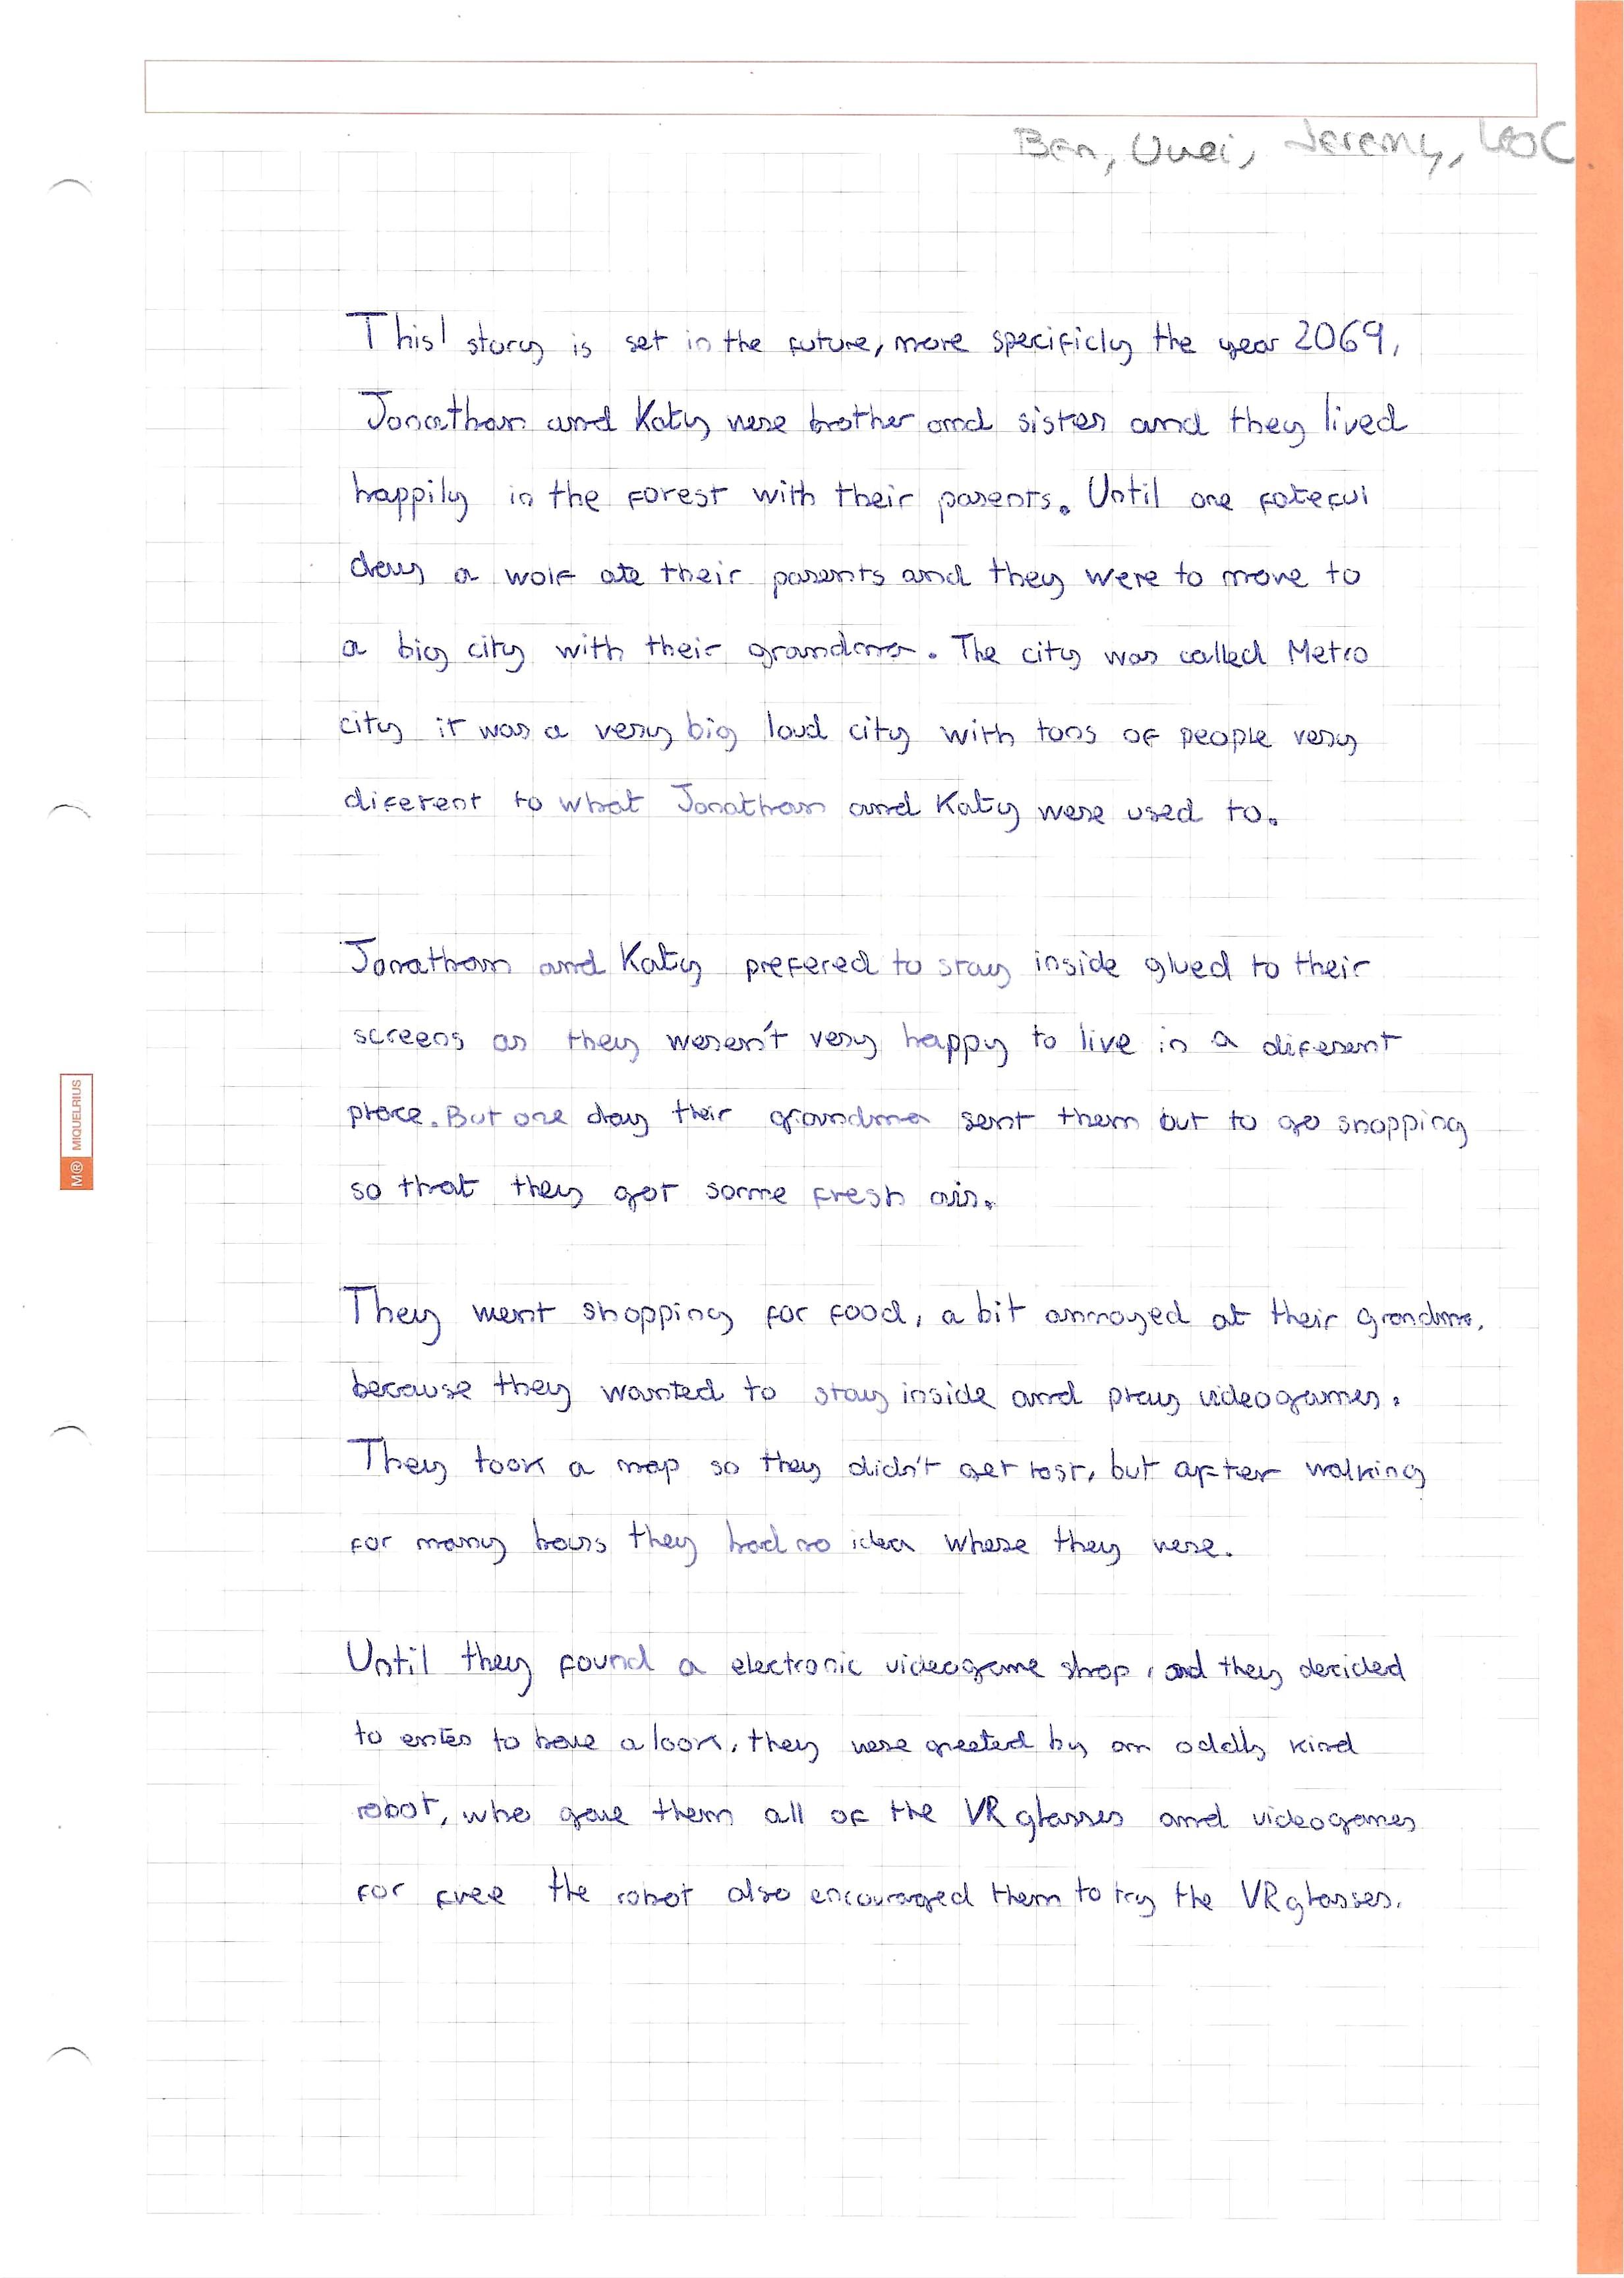 Ben, Unai, Jeremy, Leo C.
This story is set in the future, more specificly the year 2069,
Jonathan and Katy were brother and sister and they lived
happily in the forest with their parents. Until one fateful
day a wolf ate their parents and they were to move to
a big city with their grandma. The city was called Metro
city it was a very big loud city with tons of people very
diferent to what Jonathan and Katy were used to.
Jonathan and Katy prefered to stay inside glued to their
screens as they weren't very happy to live in a diferent
place. But one day their grandma sent them out to go shopping
so that they got some fresh air.
They went shopping for food, a bit annoyed at their grandma,
because they wanted to stay inside and play videogames.
They took a map so they didn't get lost, but after walking
for many hours they had no idea where they were.
Until they found a electronic videogame shop, and they decided
to enter to have a look, they were greeted by an oddly kind
robot, who gave them all of the VR glasses and videogames
for free the robot also encouraged them to try the VR glasses.
M® MIQUELRIUS